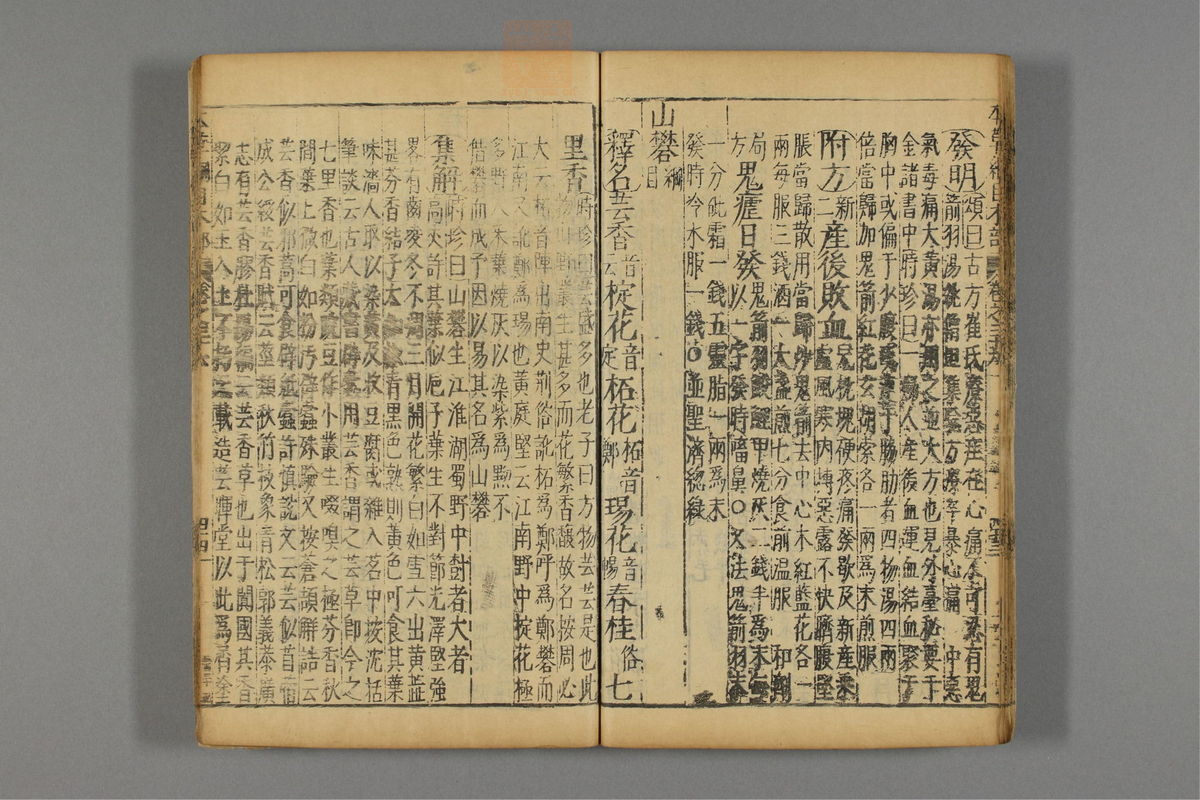 發明頌曰古方崔氏療惡疰在心痛不可忍有鬼
箭羽湯集驗方療卒暴心痛中惡
氣毒痛大黃湯亦用之並大方也見外臺秘要千
金諸書中時珍曰一人產後血運血結血聚于
胸中或偏于少腹或連于脇肋者四物湯四兩
倍當歸加鬼箭紅花玄胡索各一兩爲末煎服
附方新二產後敗血兒枕塊硬疼痛發歇及新產乘
虛風寒內搏惡露不快臍腹堅
脹當歸散用當歸炒鬼箭去中心木紅藍花各一
兩每服三錢酒一大盞煎七分食前溫服和劑
局方鬼瘧日發鬼箭羽鯪鯉甲燒灰二錢半爲末每
以一字發時㗜鼻○又法鬼箭羽末
一分砒霜一錢五靈脂一兩爲末
發時冷水服一錢○並聖濟總錄
山礬綱目
釋名芸香音云椗花音定柘花柘音鄭瑒花音暢春桂俗七
里香時珍曰芸盛多也老子曰万物芸芸是也此
物山野叢生甚多而花繁香馥故名按周必
大云柘音陣出南史荊俗訛柘爲鄭呼爲鄭礬而
江南又訛鄭爲瑒也黃庭堅云江南野中椗花極
多野人采葉燒灰以染紫爲黝不
借礬而成予因以易其名爲山礬
集解時珍曰山礬生江淮湖蜀野中樹者大者
高丈許其葉似卮子葉生不對節光澤堅強
畧有齒凌冬不凋三月開花繁白如雪六出黃蕊
甚芬香結子大如椒青黑色熟則黃色可食其葉
味濇人取以染黃及收豆腐或雜入茗中按沈括
筆談云古人藏書辟蠹用芸香謂之芸草卽今之
七里香也葉類豌豆作小叢生啜嗅之極芬香秋
間葉上微白如粉汚辟蠹殊驗又按蒼頡解詁云
芸香似邪蒿可食辟紙蠹許慎說文云芸似苜蓿
成公綏芸香賦云莖類秋竹枝象青松郭義恭廣
志有芸香膠杜陽編云芸香草也出于闐國其香
潔白如玉入土不朽元載造芸暉堂以此爲屑塗
四十一